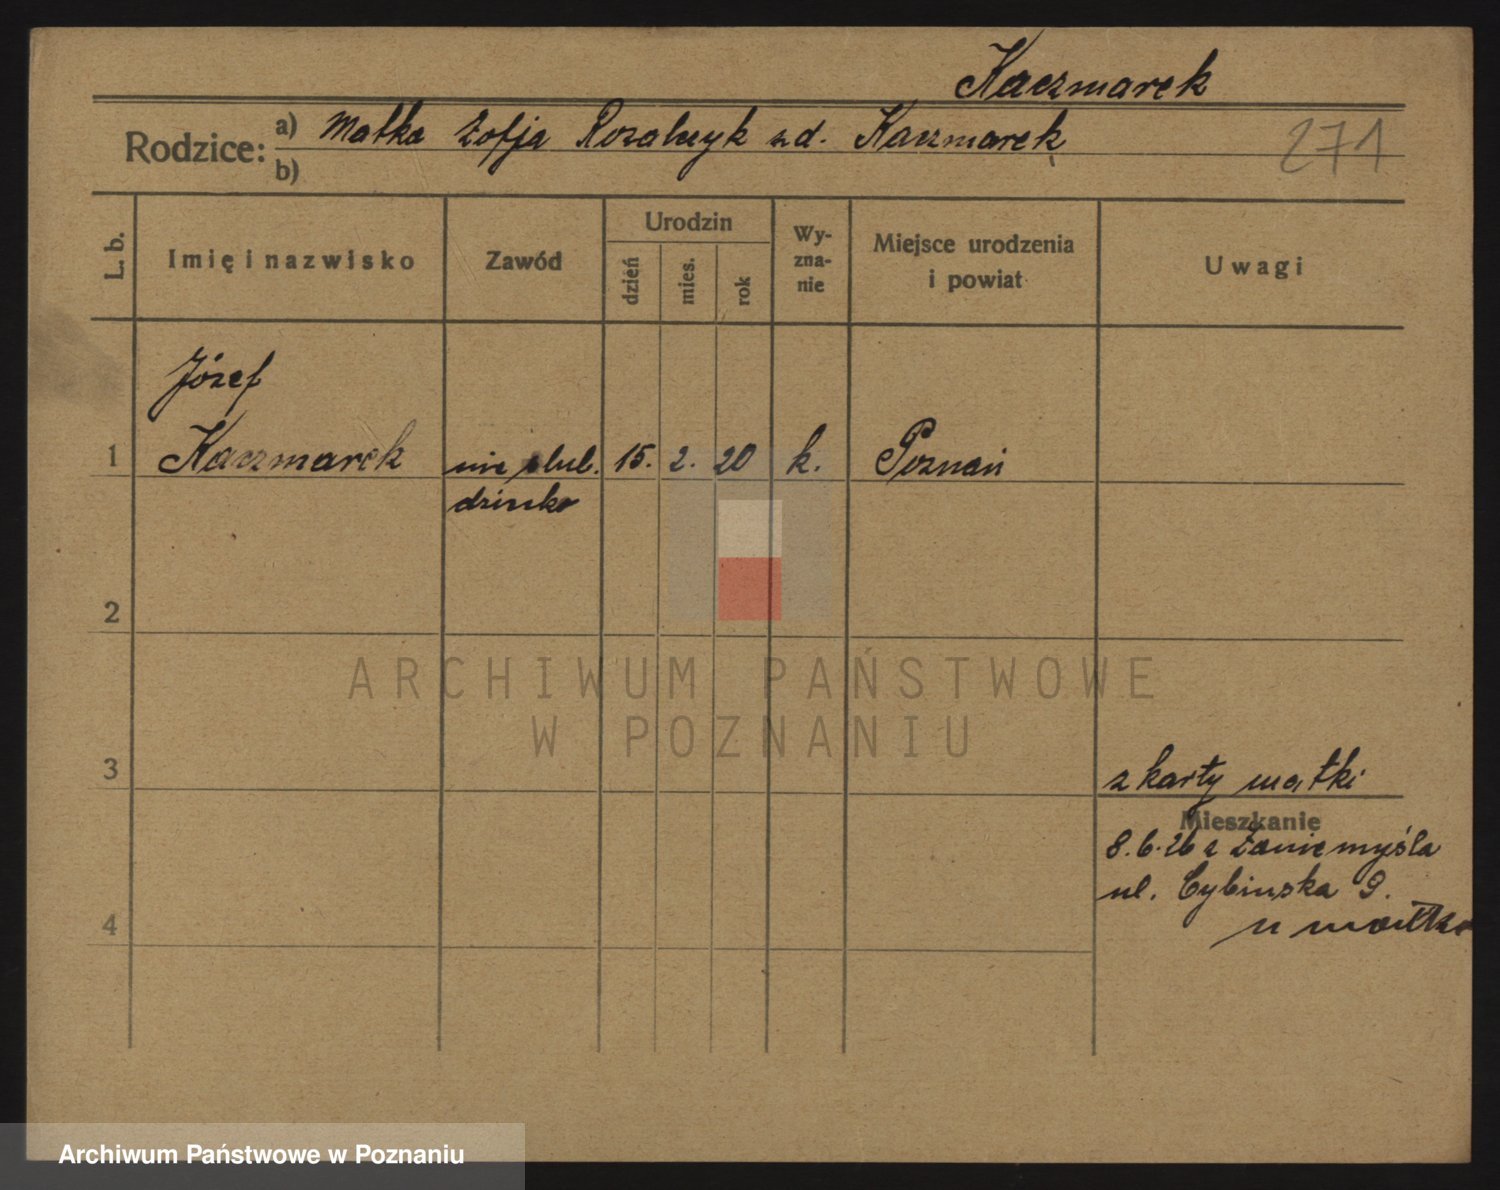 Kaczmarek
Rodzice: a) Matka Zofja
zd. Kaczmarek
b)
271
L. b.
Imię i nazwisko
Zawód
Urodzin
dzień
mies.
rok
Wy-
zna-
nie
Miejsce urodzenia
i powiat
Uwagi
Józef
1 Kaczmarek nieślub. 15. 2. 20 k. Poznań
dziecko
2
ARCHIWUM PAŃSTWOWE
W POZNANIU
3
z karty matki
Mieszkanie
8.6.26 z Zaniemyśla
ul. Cybinska 9.
4
u matki
Archiwum Państwowe w Poznaniu